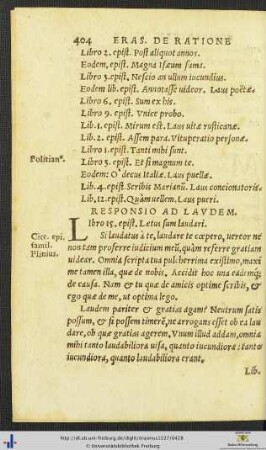 404 ERAS. DE RATIONE
Libro 2. epist. Post aliquot annos.
Eodem, epist. Magna Isæum fama.
Libro 3. epist. Nescio an ullum iucundius.
Eodem lib. epist. Annotasse uideor. Laus poëtæ.
Libro 6. epist. Sum ex his.
Libro 9. epist. Vnice probo.
Lib. 1. epist. Mirum est. Laus uitæ rusticanæ.
Lib. 2. epist. Assem para. Vituperatio personæ.
Libro 1. epist. Tanti mihi sunt.
Politianꝰ.
Libro 3. epist. Et si magnum te.
Eodem: O' decus Italiæ. Laus puellæ.
Lib. 4. epist. Scribis Marianũ. Laus concionatoriæ.
Lib. 12. epist. Quàm uellem. Laus pueri.
RESPONSIO AD LAVDEM.
Libro 15. epist. Letus sum laudari.
Cice. epi.
famil.
Plancus.
Si laudatus à te, laudare te cœpero, uereor ne
non tam proferre iudicium meũ, quàm referre gratiam
uidear. Omnia scripta tua pulcherrima existimo, maxi
me tamen illa, quæ de nobis. Accidit hoc una eademq́;
de causa. Nam & tu quæ de amicis optime scribis, &
ego quæ de me, ut optima lego.
Laudem pariter & gratias agam? Neutrum satis
possum, & si possem timerẽ, ne arrogans esset ob ea lau
dare, ob quæ gratias agerem, Vnum illud addam, omnia
mihi tanto laudabiliora uisa, quanto iucundiora: tanto
iucundiora, quanto laudabiliora erant.
Lib.
Universitätsbibliothek Freiburg